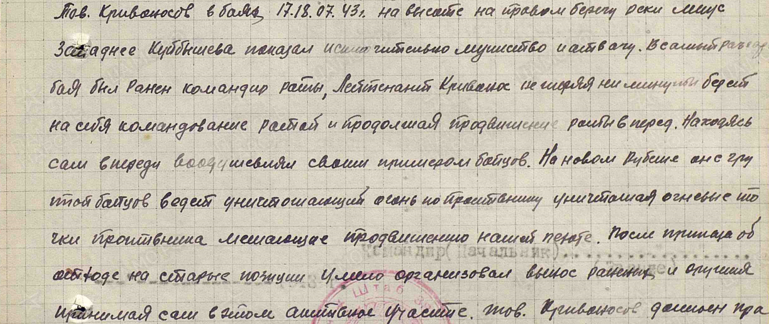 Тов. Кривоносов в боях 17.18.07.43г. на высоте на правом берегу реки миус
Западнее Куйбышева показал исключительно мужество и отвагу. В самый разгар
боя был Ранен командир роты, Лейтенант Кривонос не теряя ни минуты берет
на себя командование ротой и продолжая продвижение роты вперед. Находясь
сам впереди воодушевлял своим примером бойцов. На новом рубеже он с гру
ппой бойцов ведет уничтожающий огонь по Противнику уничтожая огневые то
чки противника мешающие продвижению нашей пехоте. После приказа об
Командир (Начальник)
отходе на старые позиции умело организовал вынос раненых и оружия
Штаб
принимая сам в этом активное участие. тов. Кривоносов должен пра